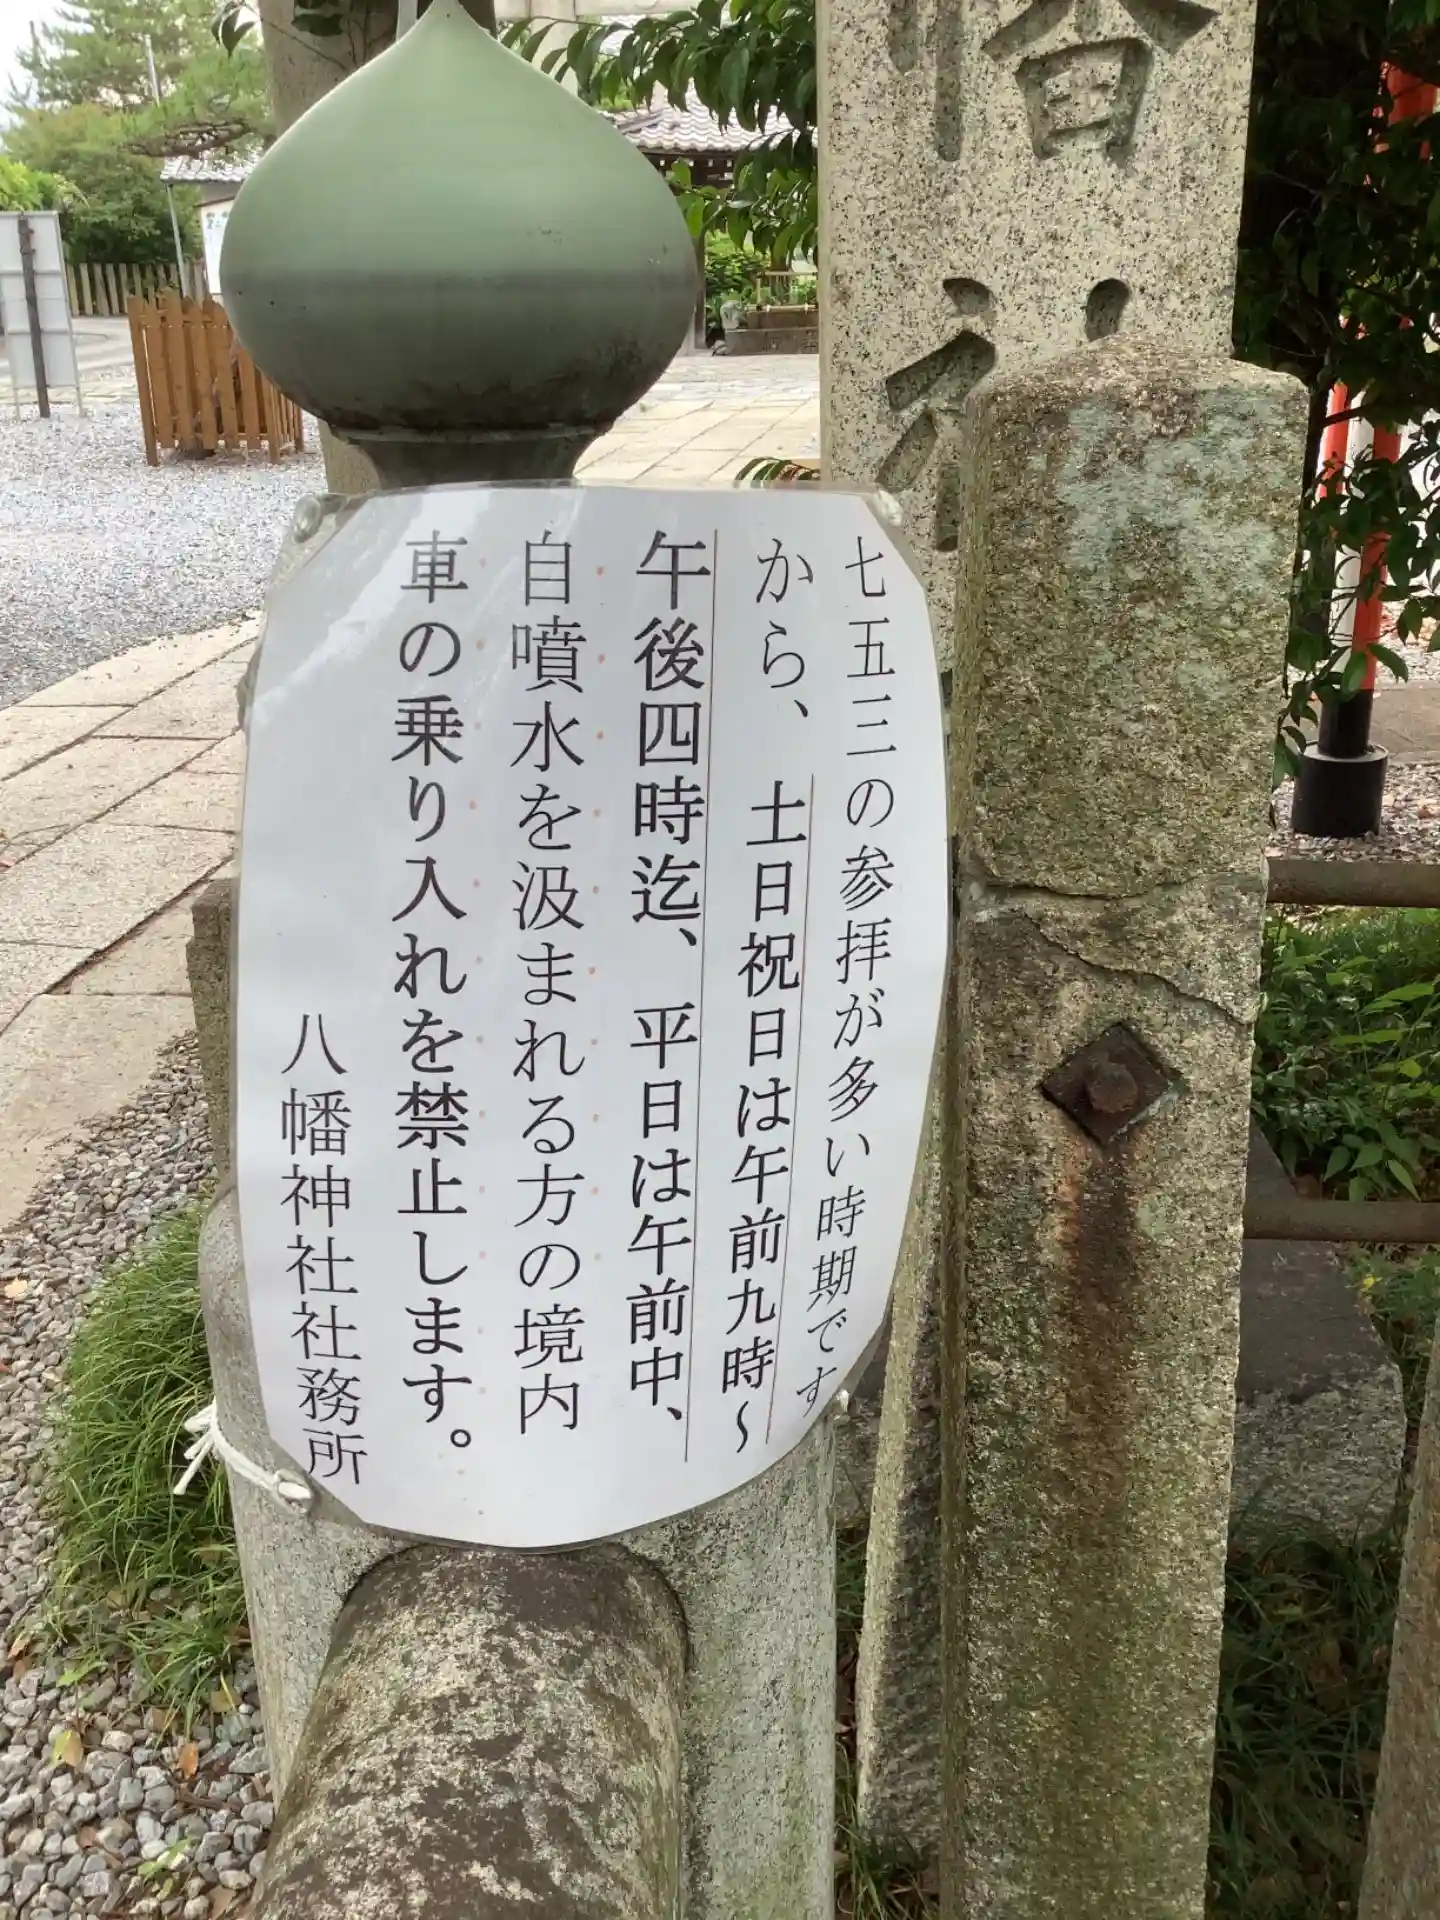 七五三の参拝が多い時期です
から、土日祝日は午前九時～
午後四時迄、平日は午前中、
自噴水を汲まれる方の境内
車の乗り入れを禁止します。
八幡神社社務所